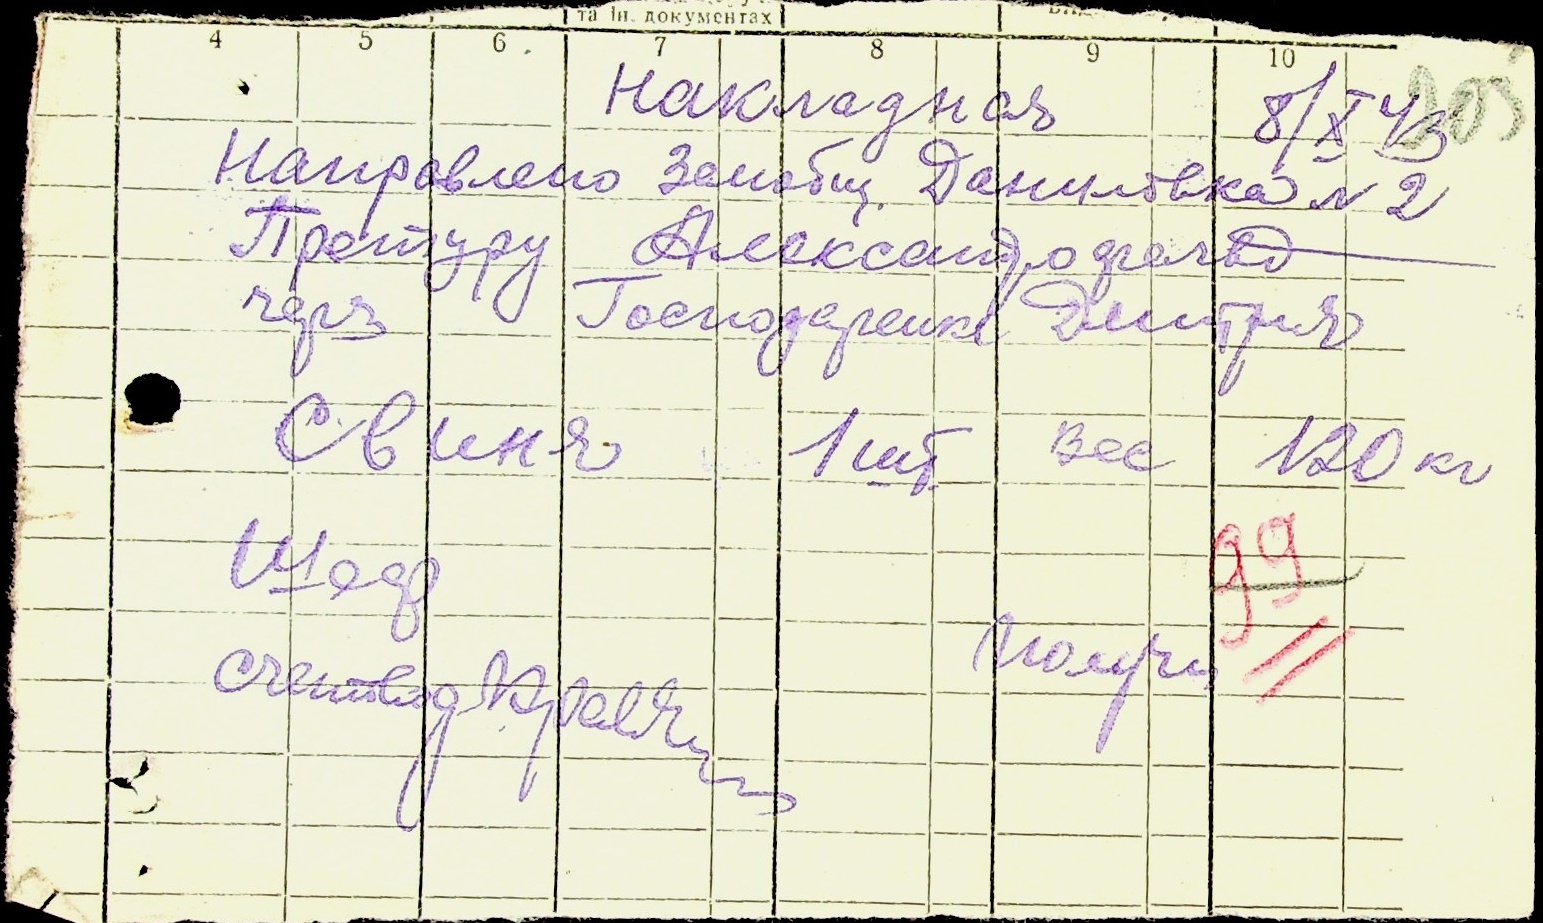 та ін. документах
4 5 6 7 8 9 10
Накладная 8/X 43
Направлено Земобщ. Даниловка № 2
Претуру Александродар
через Господаренко Дмитрия
Свиня 1 шт вес 120 кг
99
Шеф
Получил
Счетовод Кравчина